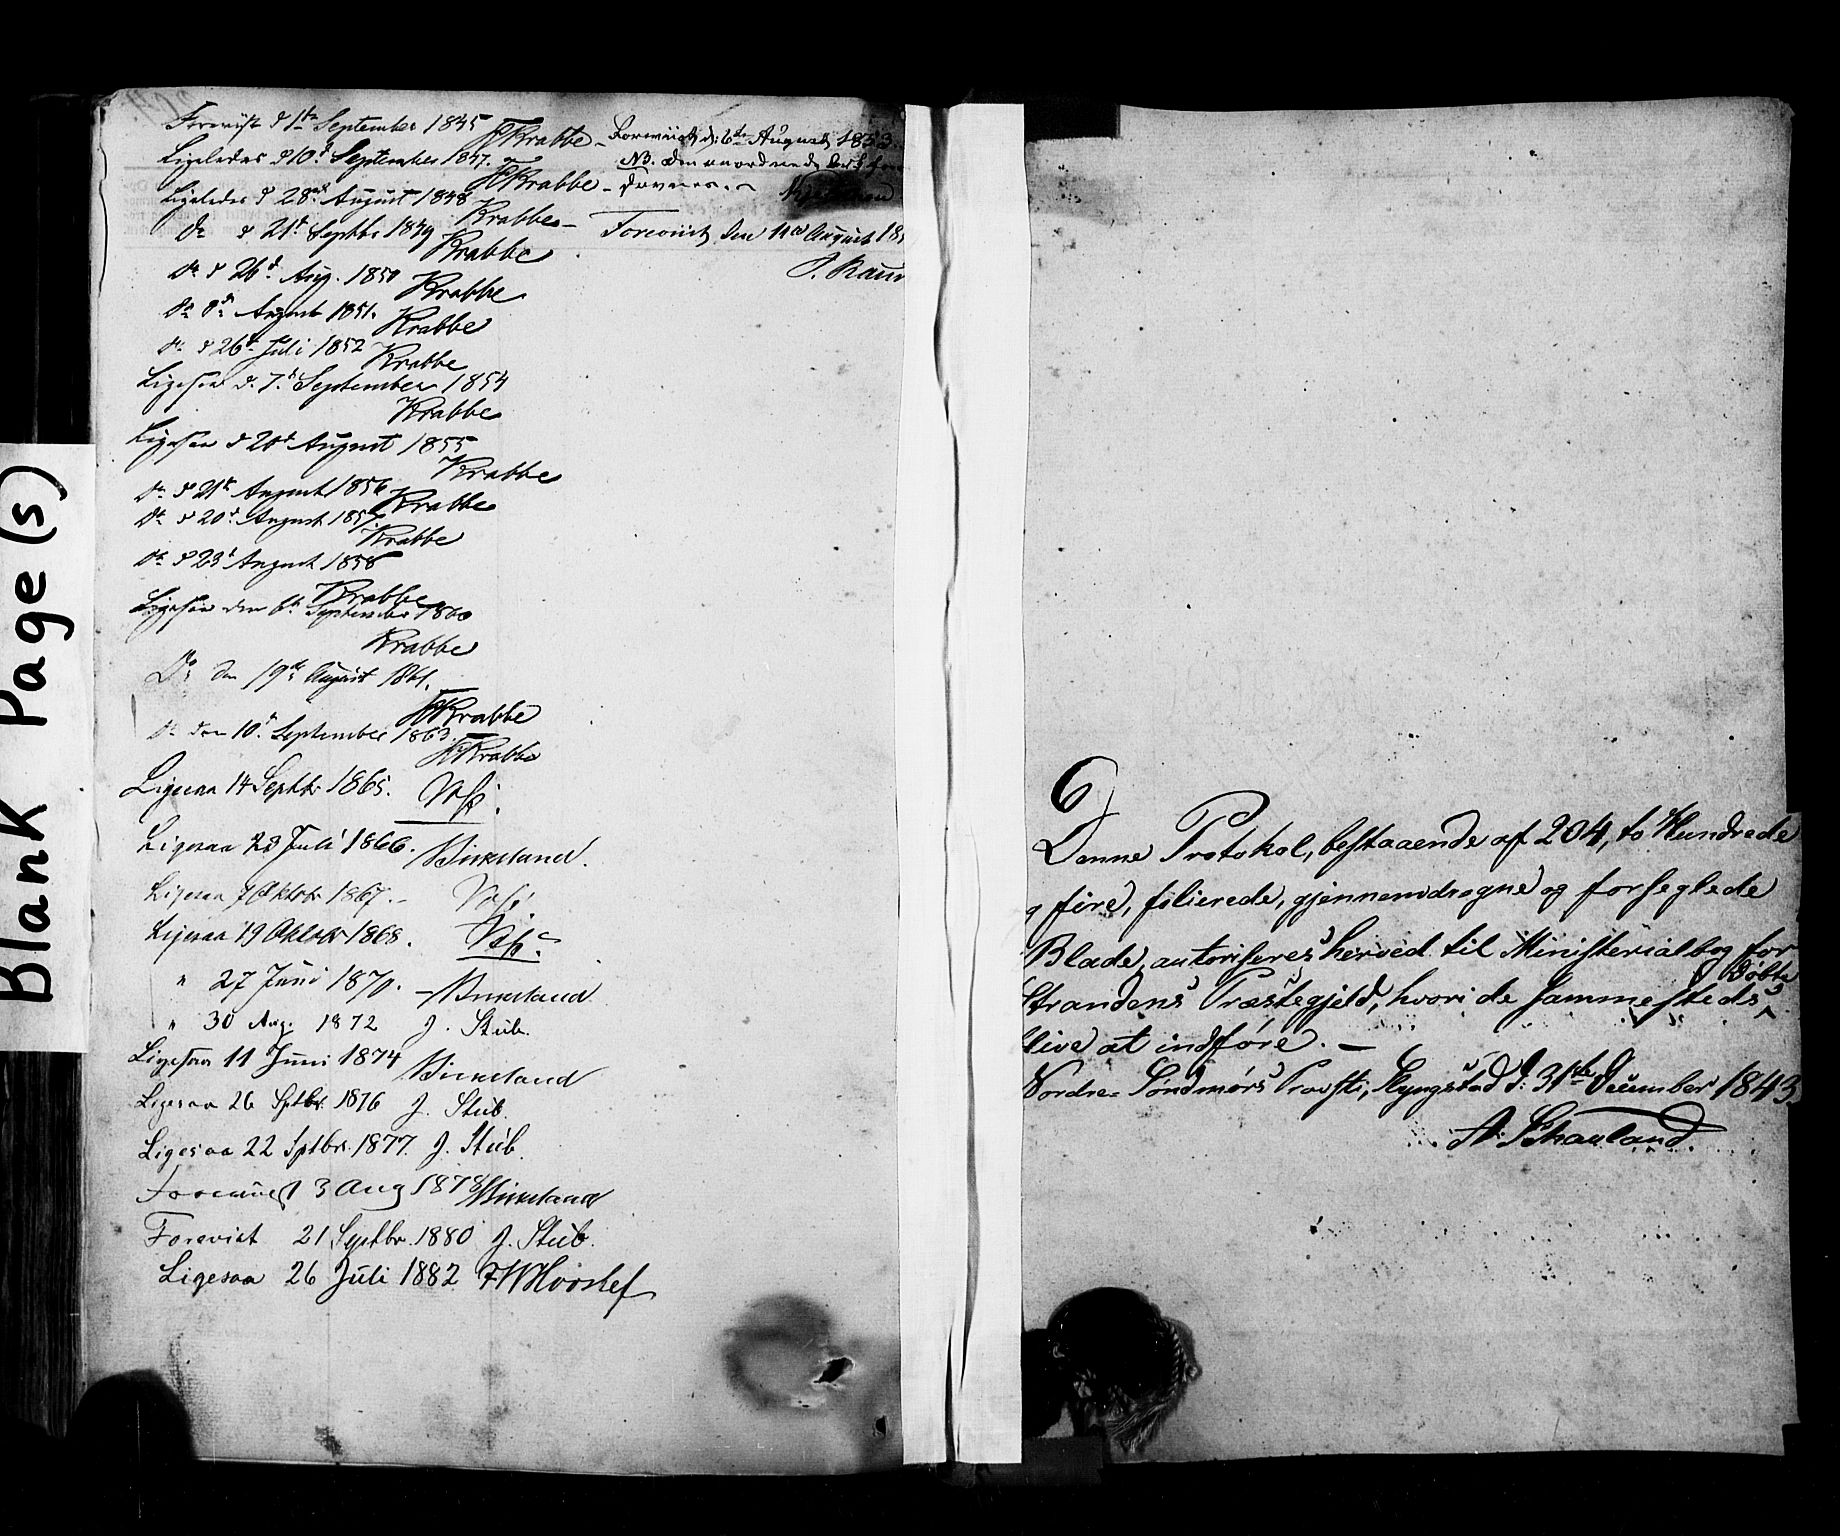 Blank Page(s)
Foreviist d 1ste September 1845
HKrabbe
Ligeledes d 10d September 1847.
HKrabbe
Ligeledes d 28de August 1848
Krabbe
do d 21d Septbr 1849
Krabbe
do d 26d Aug. 1850
Krabbe
do 8de August 1851.
Krabbe
do d 26d Juli 1852
Krabbe
Ligesaa d. 7d September 1854
Krabbe
Ligesaa d 20d August 1855
Krabbe
do d 21d August 1856
Krabbe
do d 20d August 1857
Krabbe
do d 23d August 1858
Krabbe
Ligesaa den 6d September 1860
Krabbe
Do den 19de August 1861.
HKrabbe
do den 10d September 1863.
HKrabbe
Ligesaa 14 Septbr 1865.
Ligesaa 23 Juli 1866. Birkeland.
Ligesaa 7 Oktobr 1867.
Ligesaa 19 Oktobr 1868.
" 27 Juni 1870. - Birkeland
" 30 Aug. 1872 J. Stub.
Ligesaa 11 Juni 1874 Birkeland
Ligesaa 26 Sptbr. 1876 J. Stub.
Ligesaa 22 Sptbr. 1877. J. Stub.
Forevist 3 Aug 1878 Birkeland
Forevist 21 Septbr. 1880 J. Stub.
Ligesaa 26 Juli 1882.
Foreviist d: 6te August 1853.
NB. den anordnede
Foreviist den 11te August 18
6)
Denne Protokol, bestaaende af 204, to Hundrede
og fire, folierede, gjennemdragne og forseglede
Blade, autoriseres herved til Ministerialbog for
Strandens Præstegjeld, hvori de sammesteds Døbte
blive at indføre. -
Nordre Søndmørs Provsti, Slyngstad d: 31te December 1843.
A: Schaaland.